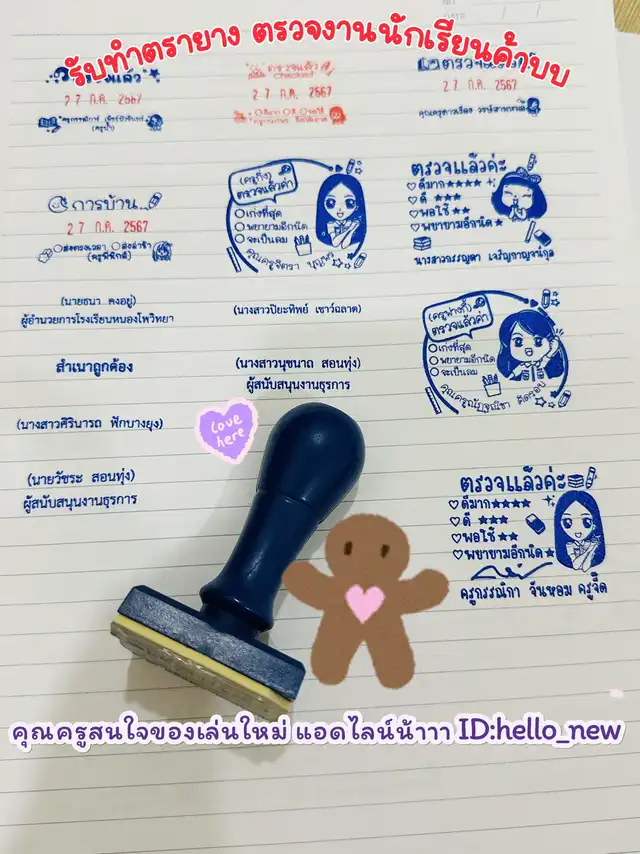 รับทำตรายาง ตรวจงานนักเรียนค้าบบ
NO
DATE
ตรวจแล้ว
27 ก.ค. 2567
ตรวจแล้ว
Checked
27 ก.ค. 2567
27 ก.ค. 2567
การบ้าน...
27 ก.ค. 2567
ส่งตรงเวลา ส่งล่าช้า
(ครูกิ๊ง)
ตรวจแล้วค่า
เก่งที่สุด
พยายามอีกนิด
จะเป็นลม
คุณครูจิตรา
ตรวจแล้วค่ะ
ดีมาก
ดี
พอใช้
พยายามอีกนิด
นางสาวกรรญดา เจริญกาญจน์กุล
(นายธนา คงอยู่)
ผู้อำนวยการโรงเรียนหนองโพวิทยา
(นางสาวปิยะทิพย์ เชาว์ฉลาด)
(ครูฟางกี้)
ตรวจแล้วค่า
เก่งที่สุด
พยายามอีกนิด
จะเป็นลม
สำเนาถูกต้อง
(นางสาวนุชนาถ สอนทุ่ง)
ผู้สนับสนุนงานธุรการ
(นางสาวศิรินารถ ฟักบางยุง)
Love
here
(นายวัชระ สอนทุ่ง)
ผู้สนับสนุนงานธุรการ
ตรวจแล้วค่ะ
ดีมาก
ดี
พอใช้
พยายามอีกนิด
ครูกรรณิกา จันหอม ครูจี๊ด
คุณครูสนใจของเล่นใหม่ แอดไลน์น้าาา ID:hello_new